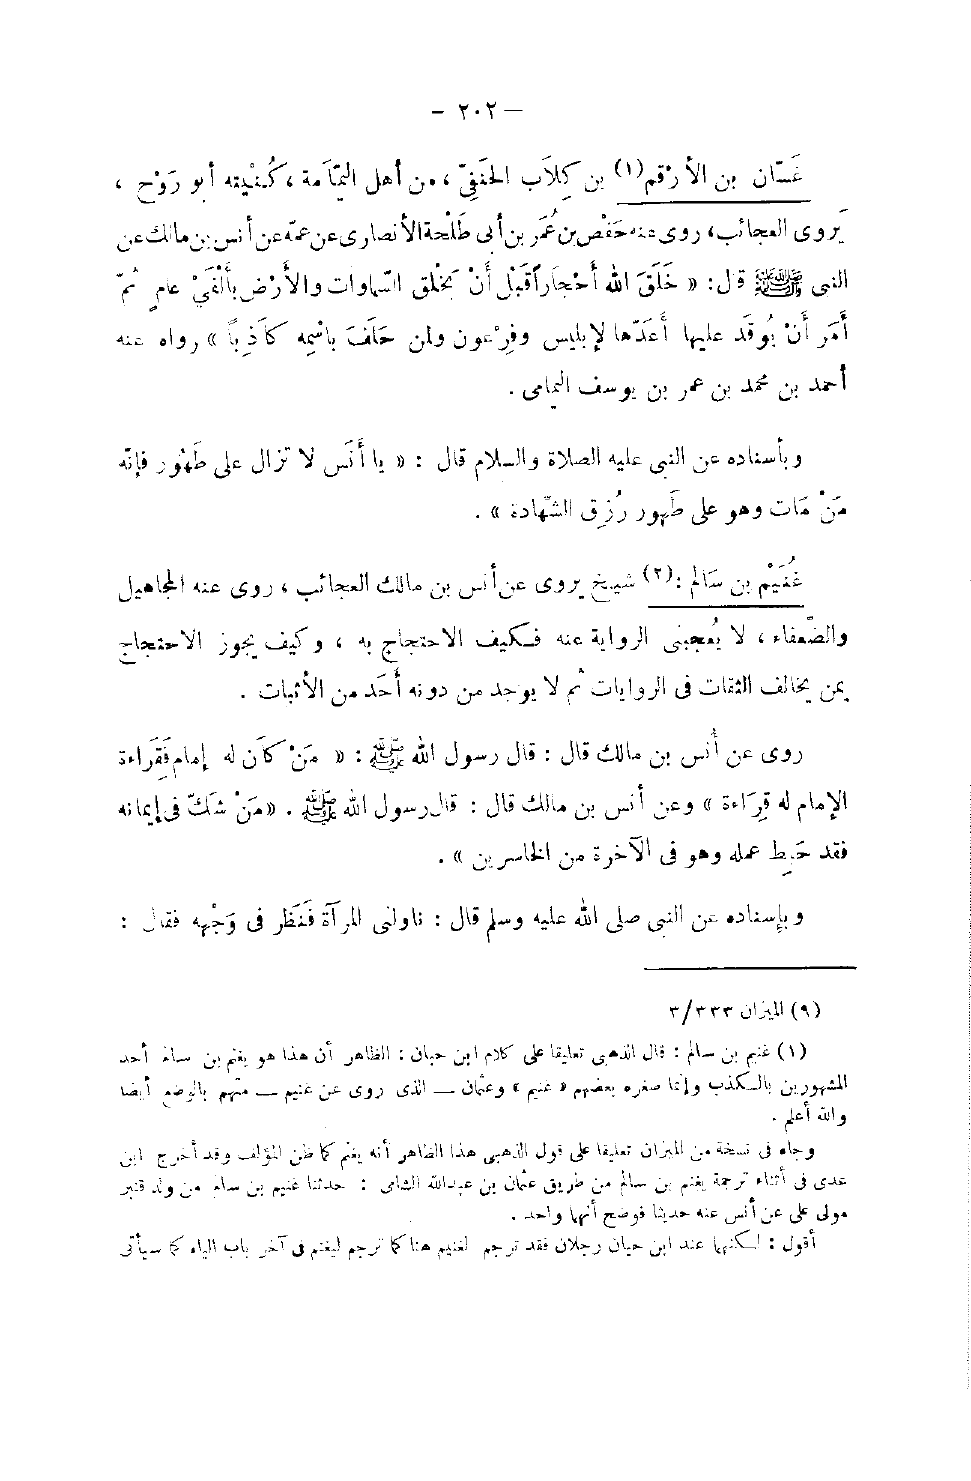 — ٢٠٢ —
غَسّان بن الأرْقم(١) بن كِلَاب الحَنَفِيّ ، من أهل اليَمَامة ، كُنْيته أبو رَوْح ،
يَروى العجائب ، روى عنه حَفْص بن عُمَر بن أبى طَلْحة الأنصارى عن عمّه عن أنس بن مالك عن
النبى ﷺ قال : « خَلَقَ الله أحْجاراً قَبْل أنْ يَخْلق السّماوات والأرْض بألْفَىْ عام ثُمّ
أمَر أنْ يُوقَد عليها أعَدّها لإبليس وفِرْعون ولمن حَلَفَ باسْمِه كاذِباً » رواه عنه
أحمد بن محمد بن عمر بن يوسف اليمامى .
وبأسناده عن النبى عليه الصلاة والسلام قال : « يا أنَس لا تزال على طَهُور فإنّه
مَنْ مَات وهو على طَهور رُزِق الشّهادة » .
غُنَيْم بن سَالم :(٢) شيخ يروى عن أنس بن مالك العجائب ، روى عنه المجاهيل
والضّعفاء ، لا يُعجبنى الرواية عنه فكيف الاحتجاج به ، وكيف يجوز الاحتجاج
بمن يخالف الثقات فى الروايات ثم لا يوجد من دونه أحَد من الأثبات .
روى عن أنس بن مالك قال : قال رسول الله ﷺ : « مَنْ كَان له إمام فَقِرَاءة
الإمام له قِرَاءة » وعن أنس بن مالك قال : قال رسول الله ﷺ . « مَنْ شكّ فى إيمانه
فقد حَبِط عمله وهو فى الآخرة من الخاسرين » .
وبإسناده عن النبى صلى الله عليه وسلم قال : ناولنى المرآة فَنَظَر فى وَجْهه فقال :
(٩) الميزان ٣/٣٣٣
(١) غنيم بن سالم : قال الذهبى تعليقا على كلام ابن حبان : الظاهر أن هذا هو يغنم بن سالم أحد
المشهورين بالكذب وإنما صغره بعضهم « غنيم » وعثمان — الذى روى عن غنيم — متهم بالوضع أيضا
والله أعلم .
وجاء فى نسخة من الميزان تعليقا على قول الذهبى هذا الظاهر أنه يغنم كما ظن المؤلف وقد أخرج ابن
عدى فى أثناء ترجمة يغنم بن سالم من طريق عثمان بن عبدالله الشامى : حدثنا غنيم بن سالم من ولد قنبر
مولى على عن أنس عنه حديثا فوضح أنهما واحد .
أقول : لكنهما عند ابن حبان رجلان فقد ترجم لغنيم هنا كما ترجم ليغنم فى آخر باب الياء كما سيأتى